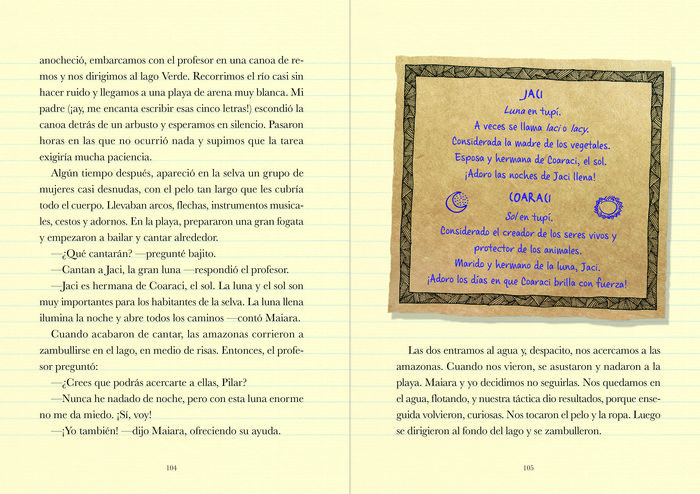 anocheció, embarcamos con el profesor en una canoa de re-
mos y nos dirigimos al lago Verde. Recorrimos el río casi sin
hacer ruido y llegamos a una playa de arena muy blanca. Mi
padre (¡ay, me encanta escribir esas cinco letras!) escondió la
canoa detrás de un arbusto y esperamos en silencio. Pasaron
horas en las que no ocurrió nada y supimos que la tarea
exigiría mucha paciencia.
Algún tiempo después, apareció en la selva un grupo de
mujeres casi desnudas, con el pelo tan largo que les cubría
todo el cuerpo. Llevaban arcos, flechas, instrumentos musica-
les, cestos y adornos. En la playa, prepararon una gran fogata
y empezaron a bailar y cantar alrededor.
—¿Qué cantarán? —pregunté bajito.
—Cantan a Jaci, la gran luna —respondió el profesor.
—Jaci es hermana de Coaraci, el sol. La luna y el sol son
muy importantes para los habitantes de la selva. La luna llena
ilumina la noche y abre todos los caminos —contó Maiara.
Cuando acabaron de cantar, las amazonas corrieron a
zambullirse en el lago, en medio de risas. Entonces, el profe-
sor preguntó:
—¿Crees que podrás acercarte a ellas, Pilar?
—Nunca he nadado de noche, pero con esta luna enorme
no me da miedo. ¡Sí, voy!
—¡Yo también! —dijo Maiara, ofreciendo su ayuda.
104
JACI
Luna en tupí.
A veces se llama Iaci o Iacy.
Considerada la madre de los vegetales.
Esposa y hermana de Coaraci, el sol.
¡Adoro las noches de Jaci llena!
COARACI
Sol en tupí.
Considerado el creador de los seres vivos y
protector de los animales.
Marido y hermano de la luna, Jaci.
¡Adoro los días en que Coaraci brilla con fuerza!
Las dos entramos al agua y, despacito, nos acercamos a las
amazonas. Cuando nos vieron, se asustaron y nadaron a la
playa. Maiara y yo decidimos no seguirlas. Nos quedamos en
el agua, flotando, y nuestra táctica dio resultados, porque ense-
guida volvieron, curiosas. Nos tocaron el pelo y la ropa. Luego
se dirigieron al fondo del lago y se zambulleron.
105